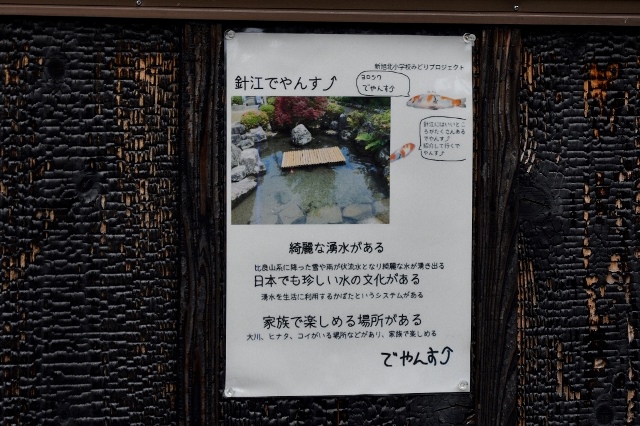 新旭北小学校みどりプロジェクト
針江でやんす⤴
ヨロシク
でやんす⤴
針江にはいいとこ
ろがたくさんある
でやんす⤴
紹介して行くで
やんす⤴
綺麗な湧水がある
比良山系に降った雪や雨が伏流水となり綺麗な水が湧き出る
日本でも珍しい水の文化がある
湧水を生活に利用するかばたというシステムがある
家族で楽しめる場所がある
大川、ヒナタ、コイがいる場所などがあり、家族で楽しめる
でやんす⤴